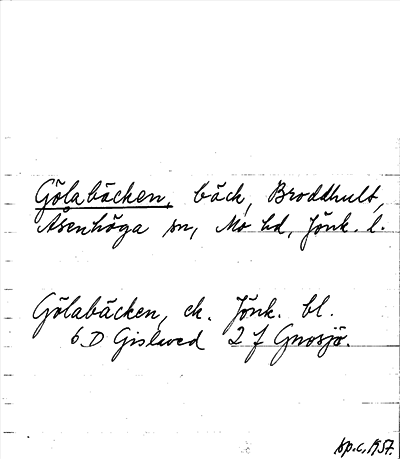 Gölabäcken, bäck, Broddhult,
Åsenhöga sn, Mo hd, Jönk. l.
Gölabäcken, ek. Jönk. bl.
6 D Gislaved 2 f Gnosjö.
sp.c, 1957.